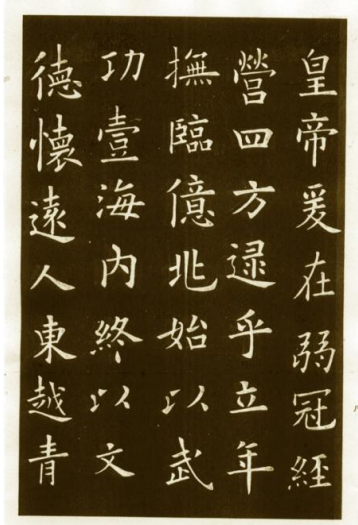 皇帝爰在弱冠經
營四方逯乎立年
撫臨億兆始以武
功壹海內終以文
德懷遠人東越青